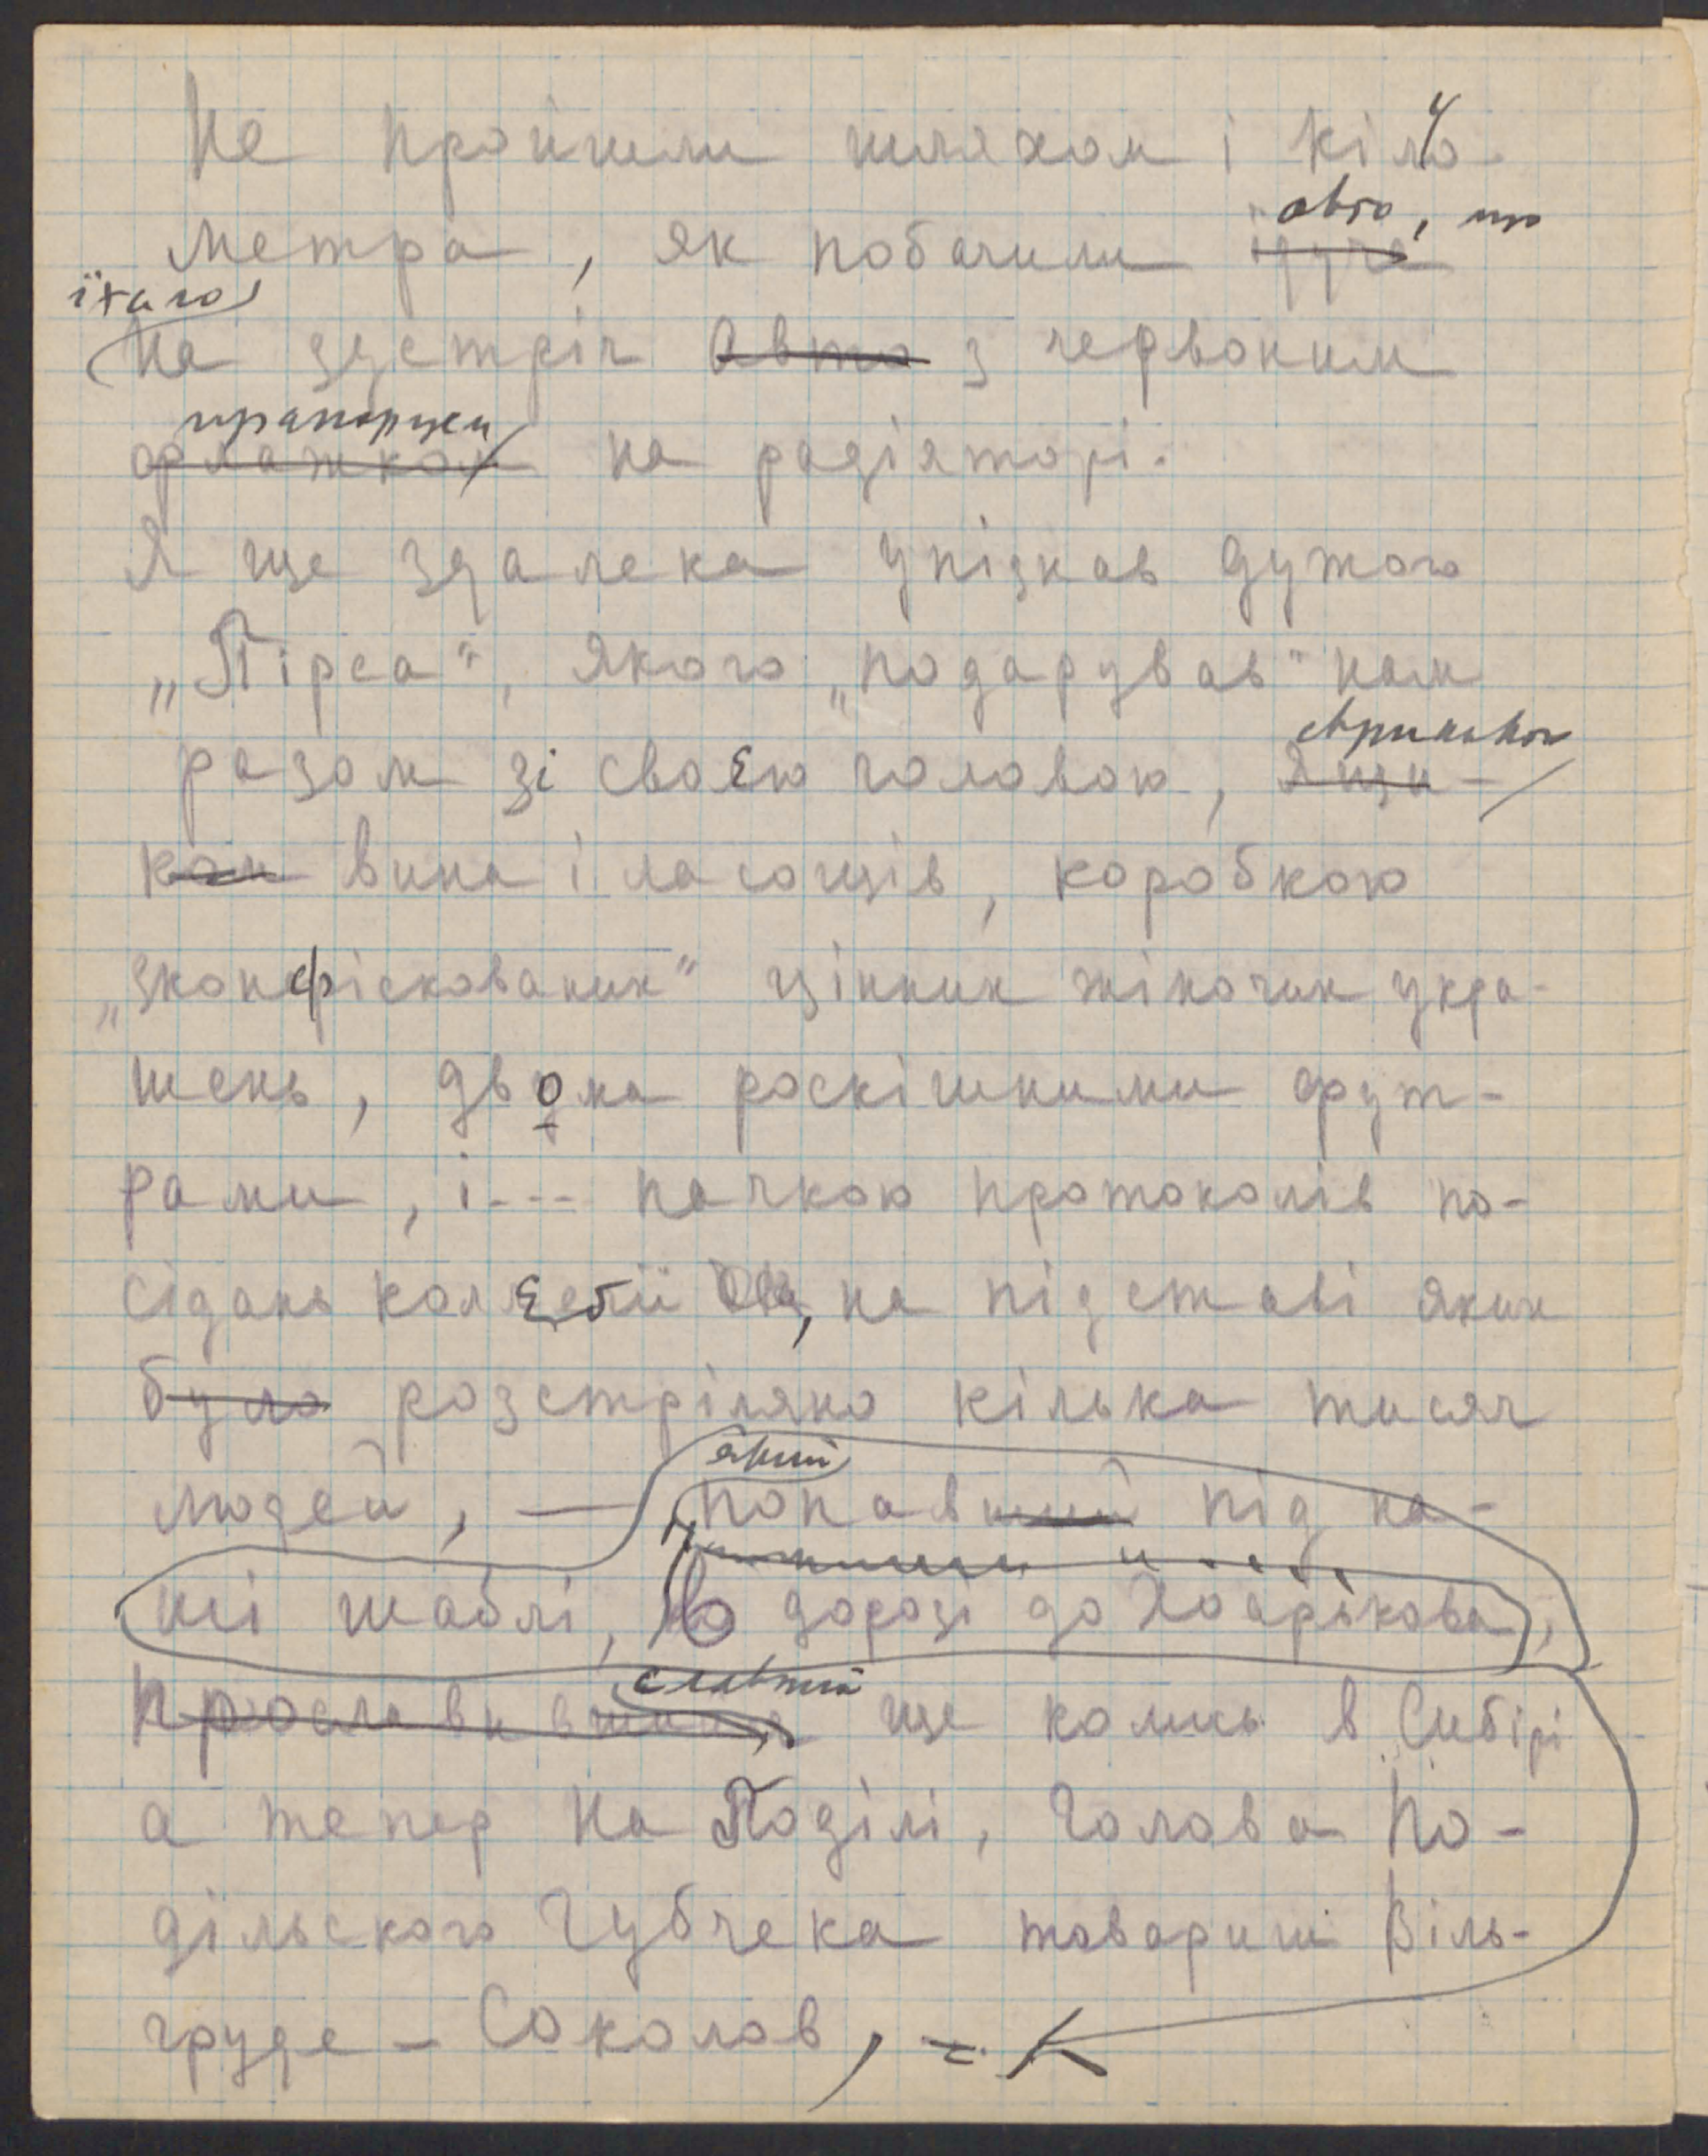 Не пройшли шляхом і кіло-
авто, що
метра, як побачили ідуче
їхало
на зустріч авто з червоним
прапорцем
флажком на радіяторі.
Я ще здалека упізнав дужого
„Пірса“, якого „подарував“ нам
скринькою
разом зі своєю головою, ящи-
ком вина і ласощів, коробкою
„зконфіскованих“ цінних жіночих укра-
шень, двома роскішними фут-
рами, і --- пачкою протоколів по-
сідань колєґії ЧК, на підставі яких
було розстріляно кілька тисяч
який
людей, — попавший під на-
ші шаблі, в дорозі до Хоарікова,
славний
Прославившийся ще колись в Сибірі
а тепер на Поділі, Голова По-
дільского Губчека товариш Віль-
груде - Соколов,